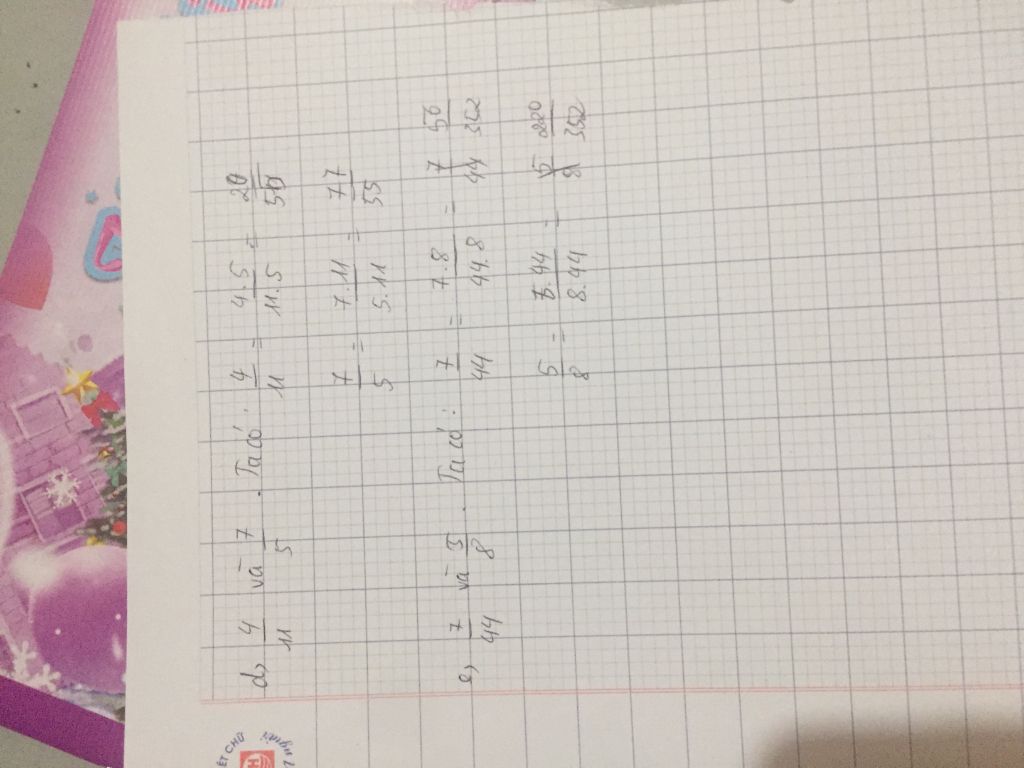 d, 4/11 và 7/5 . Ta có: 4/11 = 4.5/11.5 = 20/55
7/5 = 7.11/5.11 = 77/55
e, 7/44 và 5/8 . Ta có: 7/44 = 7.8/44.8 = 7/44 56/352
5/8 = 5.44/8.44 = 5/8 220/352
ẾT CHỮ
H